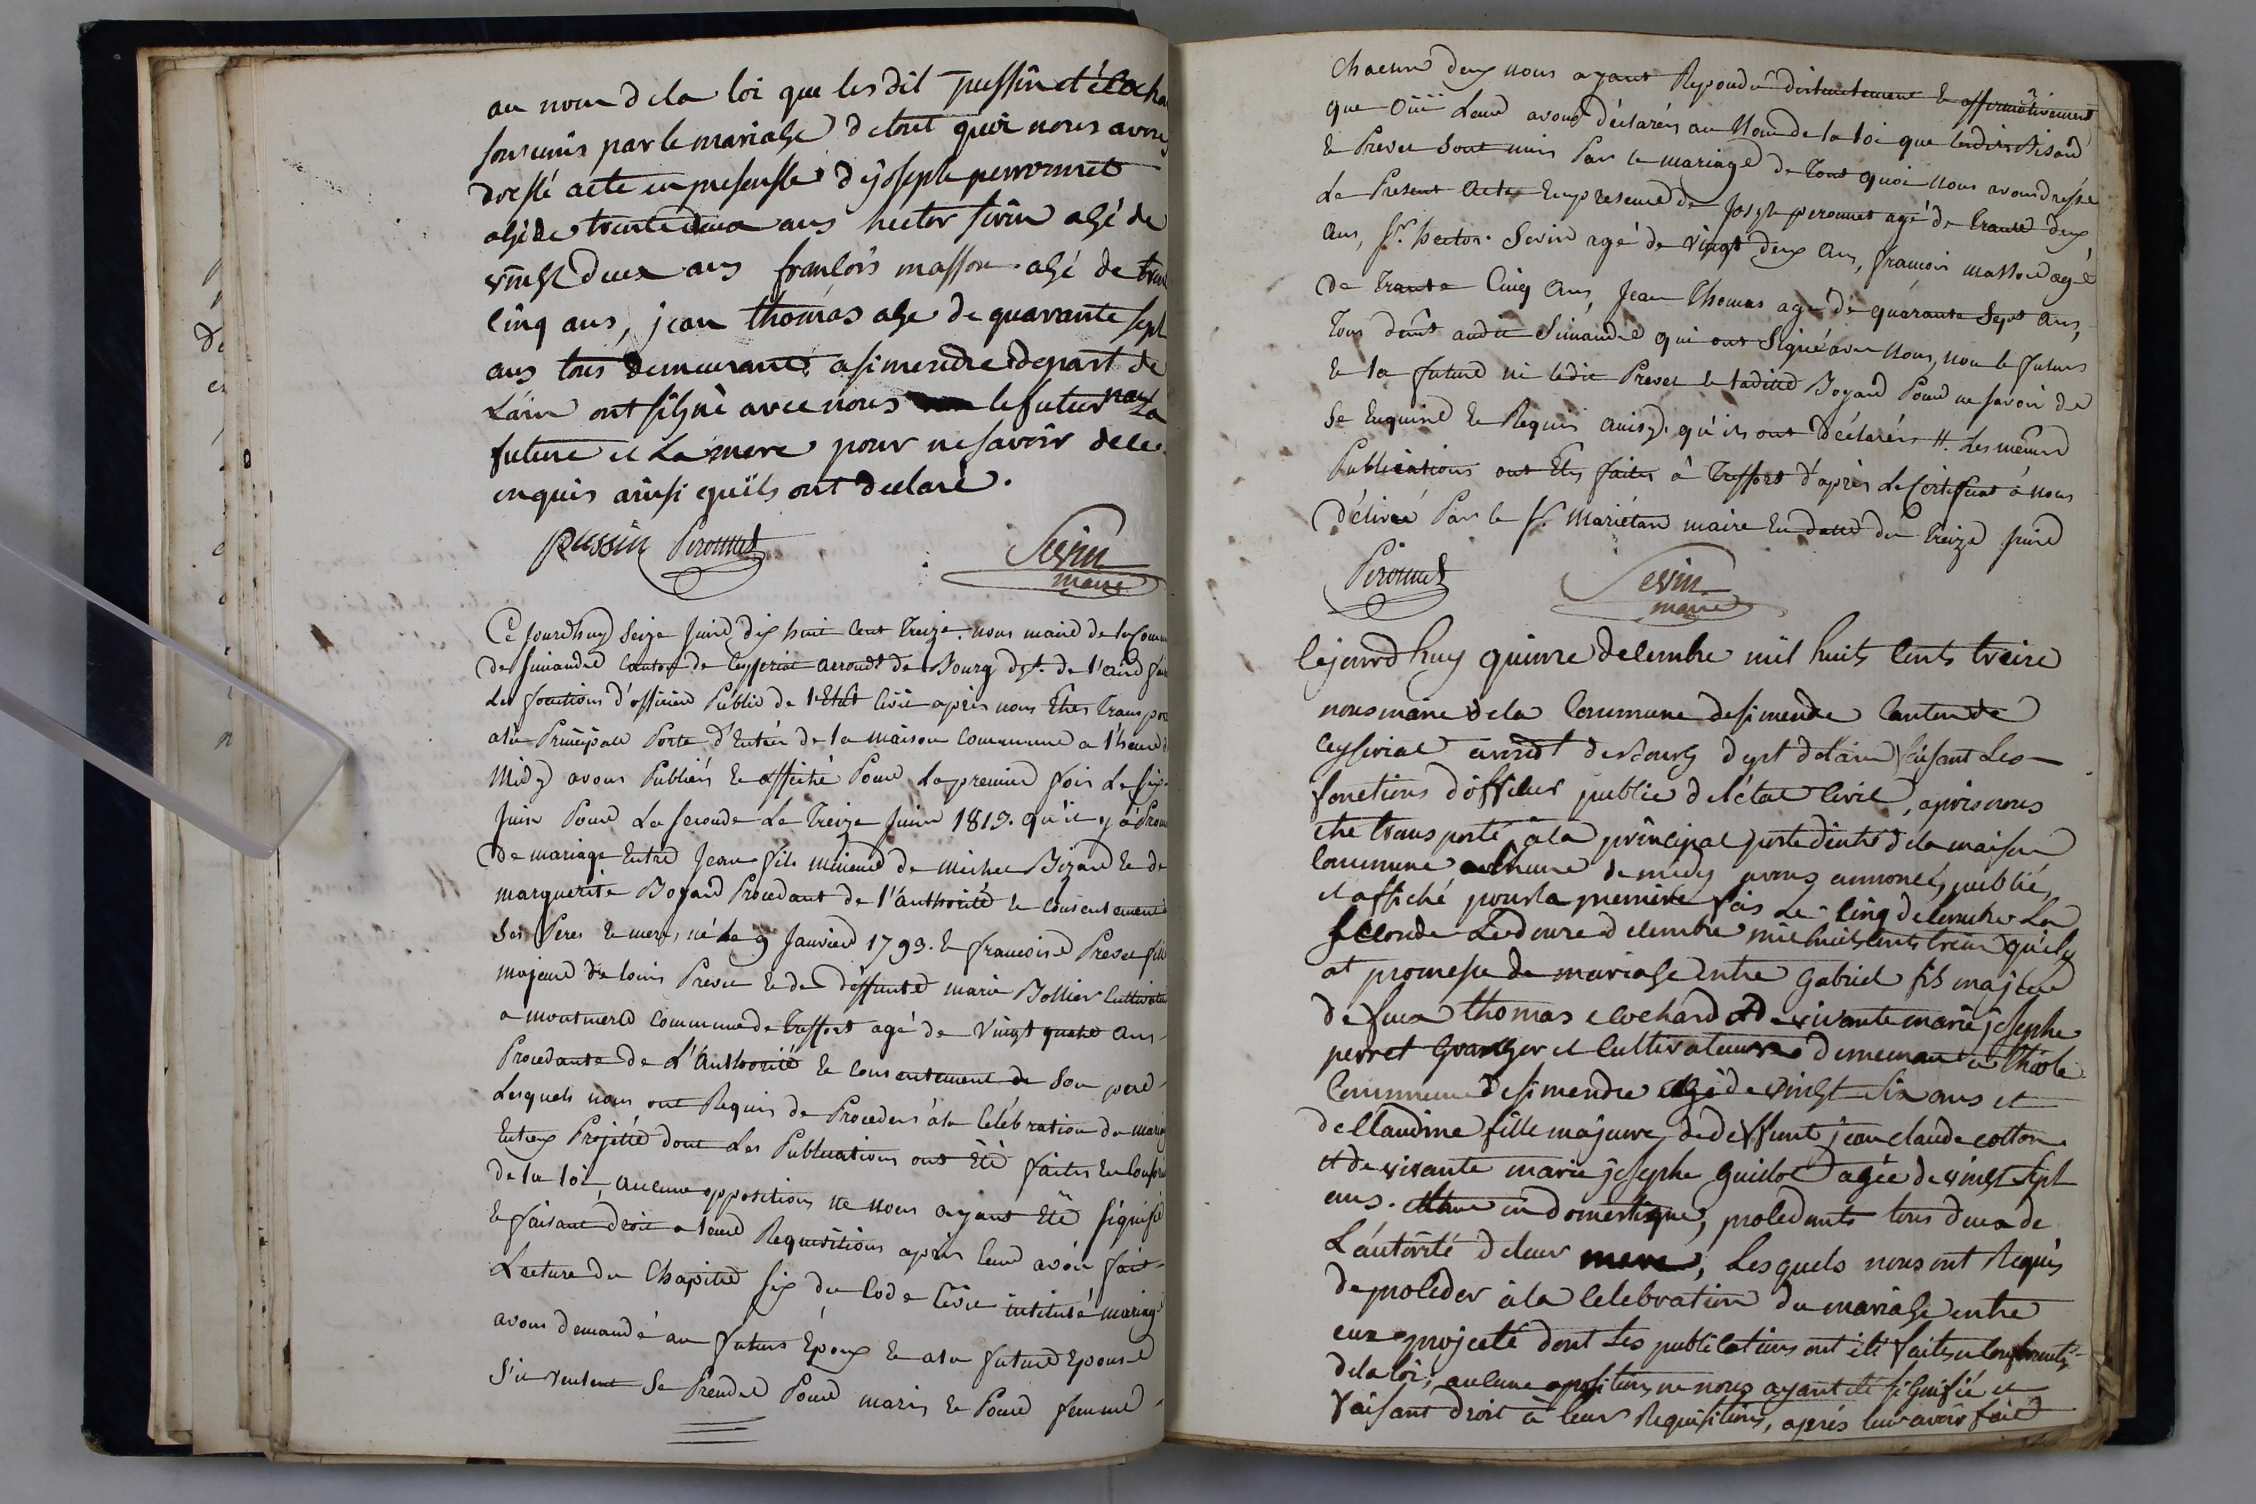 au nom de la loi que les dit pussin et clocha
sont unis par le mariage de tout quoi nous avons
dressé acte en presensse de joseph perronnet
agé de trente deux ans hector sevin agé de
vingt deux ans françois masson agé de tren
cinq ans, jean thomas age de quarante sept
ans tous demeurant a simendre depart de
Lain ont signé avec nous le futur non La
future et La mere pour ne savoir de ce
enquis ainsi qu'ils ont declaré.
Pussin Peronnet Sevin
maire
Ce Jourdhuy Seize Juin dix huit Cent Treize. nous maire de la Comm
de Simandre Canton de Ceyseriat arrondt de Bourg dept. de l'ain fai
Les fonctions d'officier Public de l'Etat Civil après nous Etre Transpor
a la Principale Porte d'Entrée de la maison Commune a l'heure d
Midy avons Publiés et affiché Pour La premier fois Le six
Juin Pour La seconde Le Treize Juin 1813. qu'il y a Prom
De mariage Entre Jean fils mineur de Michel Bizard et de
Marguerite Boyard Procedant de l'authorité et Consentement
Ses Peres et mere, né Le 9 Janvier 1793. et francoise Prevet fill
majeure de louis Prevet et de deffunte marie Bollier Cultivateu
a montmerle Commune de treffort agé de Vingt quatre ans
Procedante de L'authorité et Consentement de Son pere
Lesquels nous ont Requis de Proceder à la Célébration du mariag
Entreux Projetté dont Les Publications ont Eté faites En Confor
de la loi, aucune opposition ne nous ayant Eté signifié
et faisant droit a leur Requisitions après leur avoir fait
Lecture du Chapitre six du Code Civil intitulé mariage
avons demandé au futurs Epoux et a la future Epouse
S'il veulent Se Prendre Pour maris et Pour femme
Chacun deux nous ayant Repondu distinctement et affirmativement
que Oüi Leur avons déclarés au Nom de la loi que lesdits Bisard
et Prevet Sont unis Par le mariage de Tout quoi nous avons dressé
Le Present acte En presence de Joseph peronnet agé de trante deux
ans, sr. hector Sevin agé de vingt deux ans, francois masson agé
de trante Cinq ans, Jean thomas agé de quarante Sept ans,
Tous demt audit Simandre qui ont Signé avec Nous, non le futurs
et la future ni ledit Prevet et ladite Boyard Pour ne savoir de
Se Enquiré et Requis ainsy qu'ils ont déclarés. Les mêmes
Publications ont Etés faites à Treffort d'après Le Certificat à nous
délivré Par le sr. Marietan maire En datte du Treize Juin
Peronnet Sevin
maire
Cejourd huy quinze decembre mil huits Cents treize
nous maire de la Commune de simendre Canton de
Ceyseriat arrondt de Bourg dept de lain faisant Les
fonctions d'officier public de l'état Civil, apris nous
etre transporté à la principal porte d'entré de la maison
Commune a lheure de midy avons annoncé, publié,
et affiché pour la première fois Le cinq decembre La
seconde Le douze decembre mil huits cents treize qu'il y
at promesse de mariage entre Gabriel fils majeur
de feux thomas clochard et de vivante marie josephe
perret Granger et Cultivateurs demeurant a
Commune de simendre agé de vingt six ans et
de Claudine fille majeure de deffunt jean claude cotton
et de vivante marie josephe Guillot agée de vingt sept
ans. domestique, procedants tous deux de
L'autorité de leur mere, Lesquels nous ont Requis
de proceder à la Celebration du mariage entre
eux projeté dont Les publications ont été faites en Conformité
de la loi; aucune oposition ne nous ayant été signifié et
faisant droit à leur Requisitions, aprés leur avoir fait